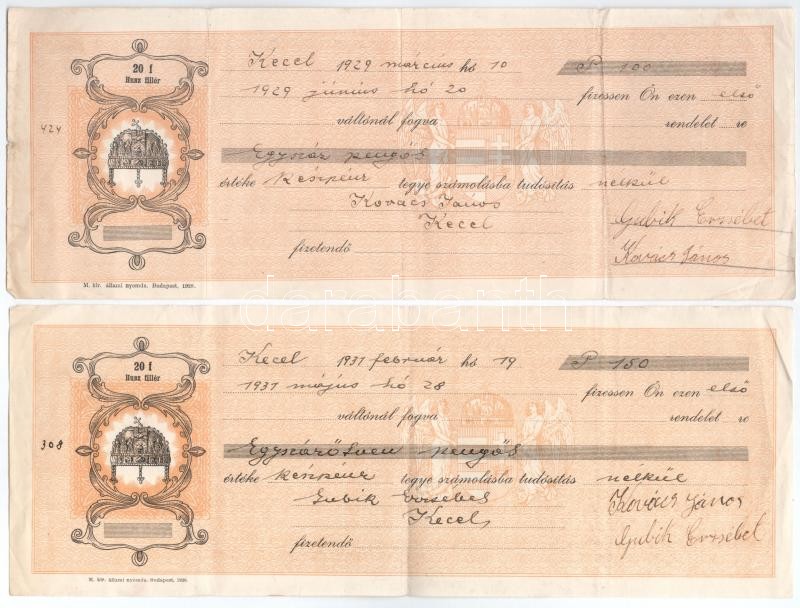 20 f
Husz fillér
Kecel 1929 március hó 10 P 100
1929 június hó 20 fizessen Ön ezen első
424
váltónál fogva rendelet re
Egyszáz pengő
értéke készpénz tegye számolásba tudósítás nélkül
Kovács János
Kecel
Gubik Erzsébet
fizetendő
Kovács János
M. kir. állami nyomda. Budapest, 1928.
darabanth
20 f
Husz fillér
Kecel 1931 február hó 19 P 150
1931 május hó 28 fizessen Ön ezen első
váltónál fogva rendelet re
308
Egyszázötven pengő
értéke készpénz tegye számolásba tudósítás nélkül
Gubik Erzsébet
Kovács János
Kecel
Gubik Erzsébet
fizetendő
M. kir. állami nyomda. Budapest, 1928.